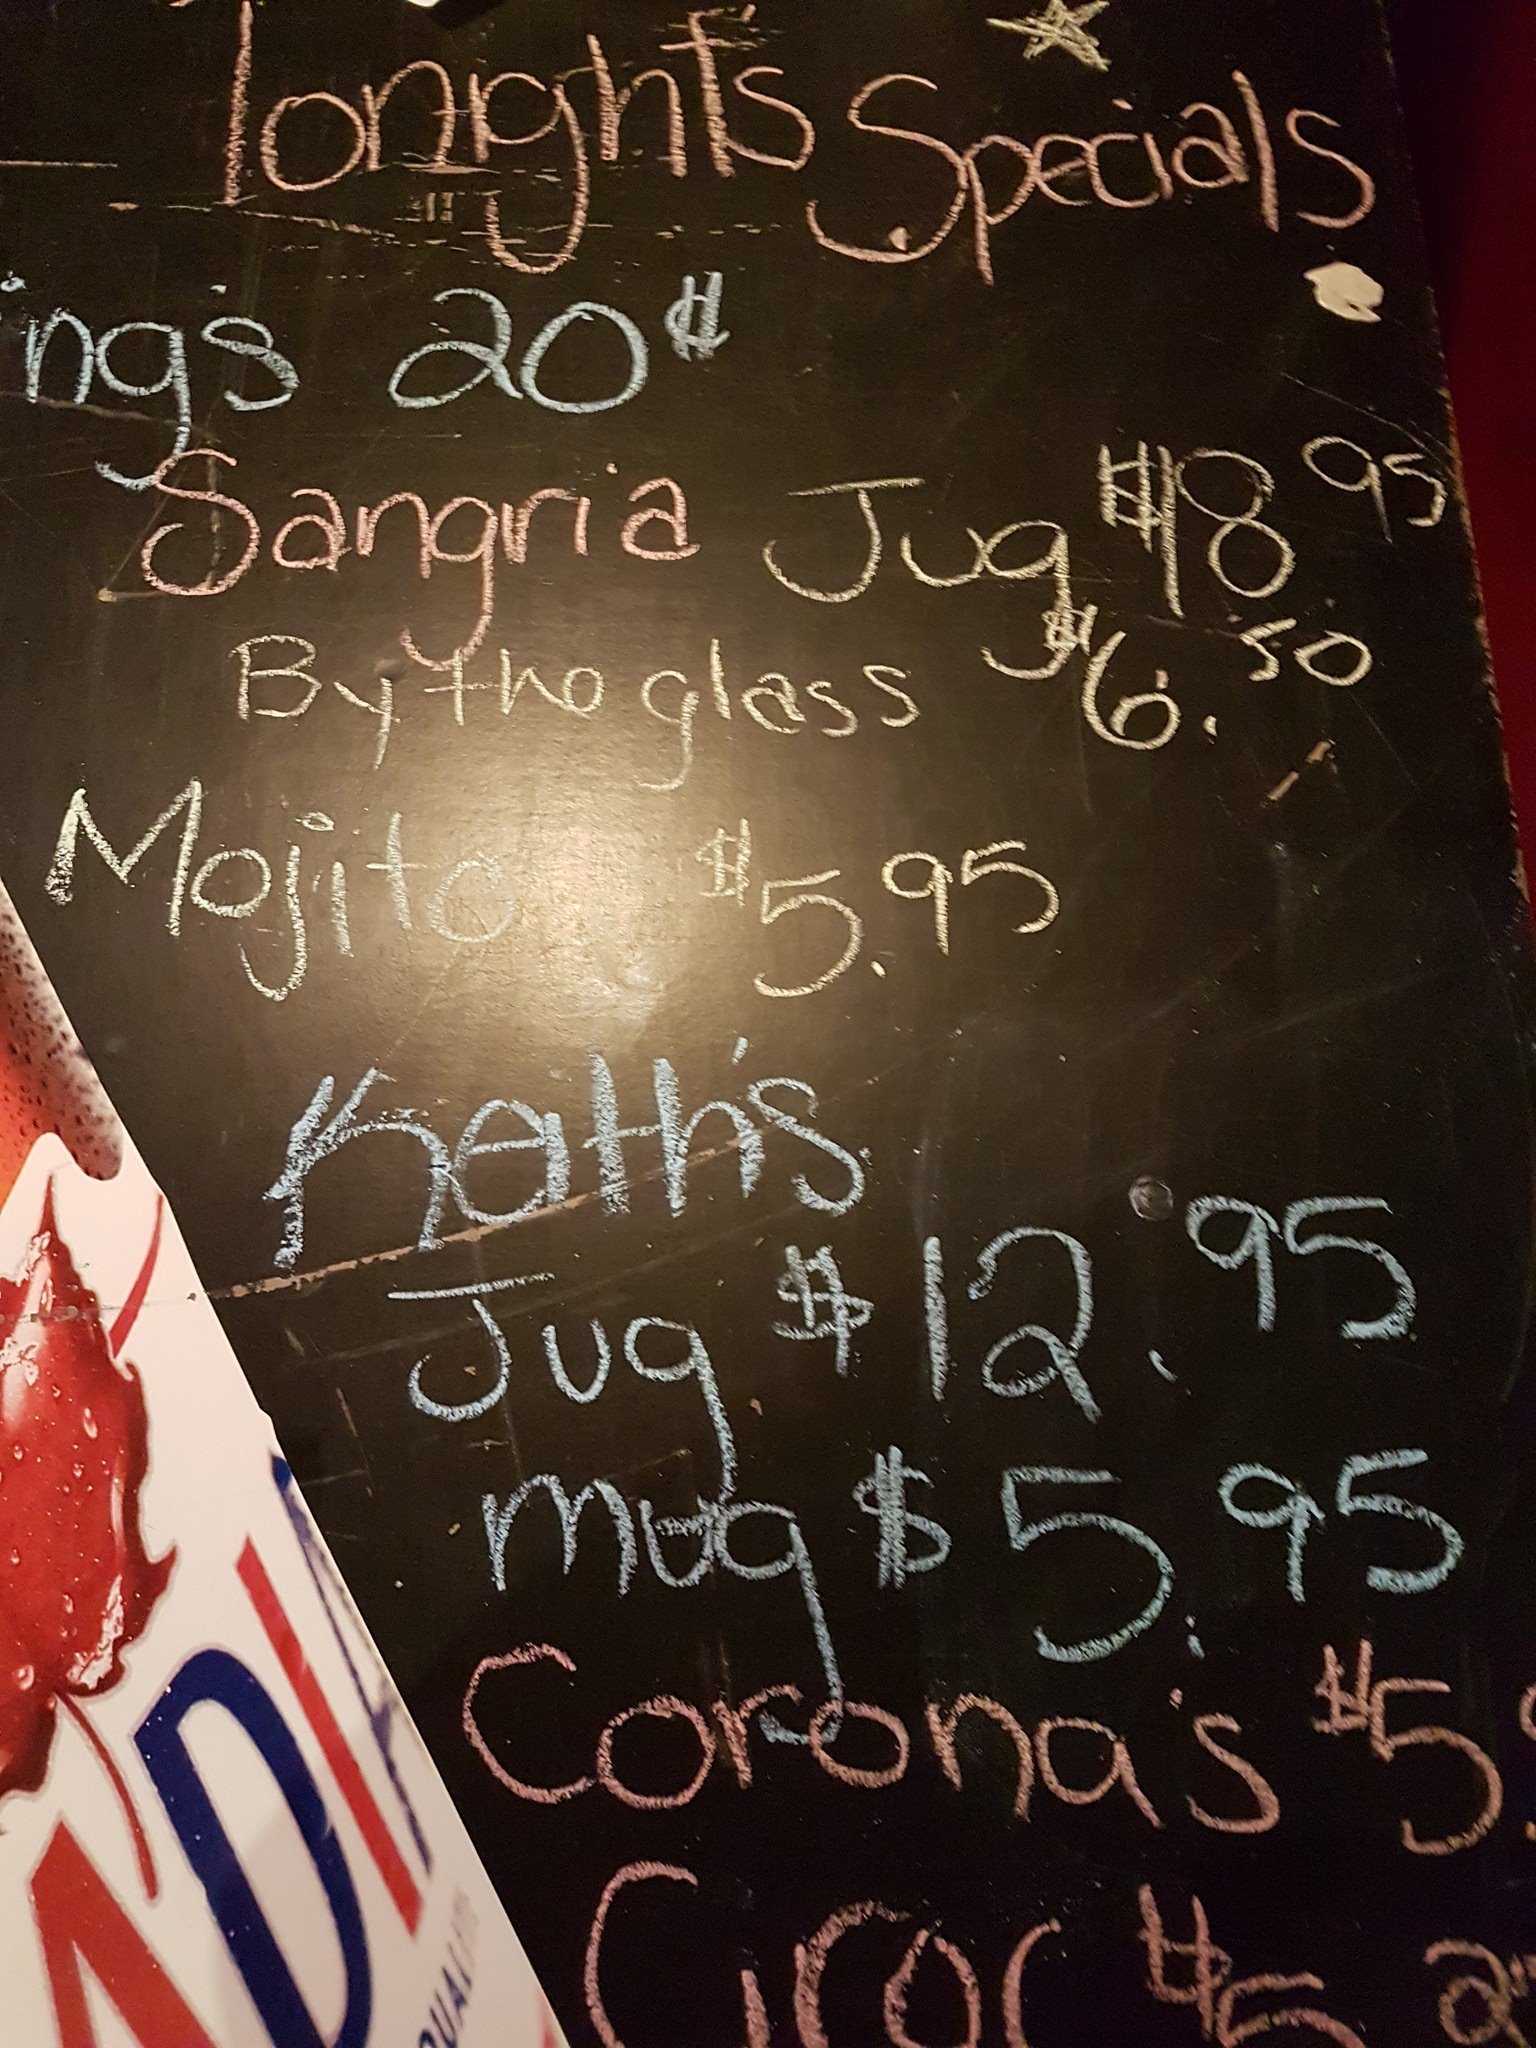 Tonight's Specials
ings 20$
Sangria Jug $18 95
By the glass $6.50
Mojito $5.95
Keith's
Jug $12.95
mug $5.95
Corona's $5.
Ciroc $5 2
ADIA
QUALI